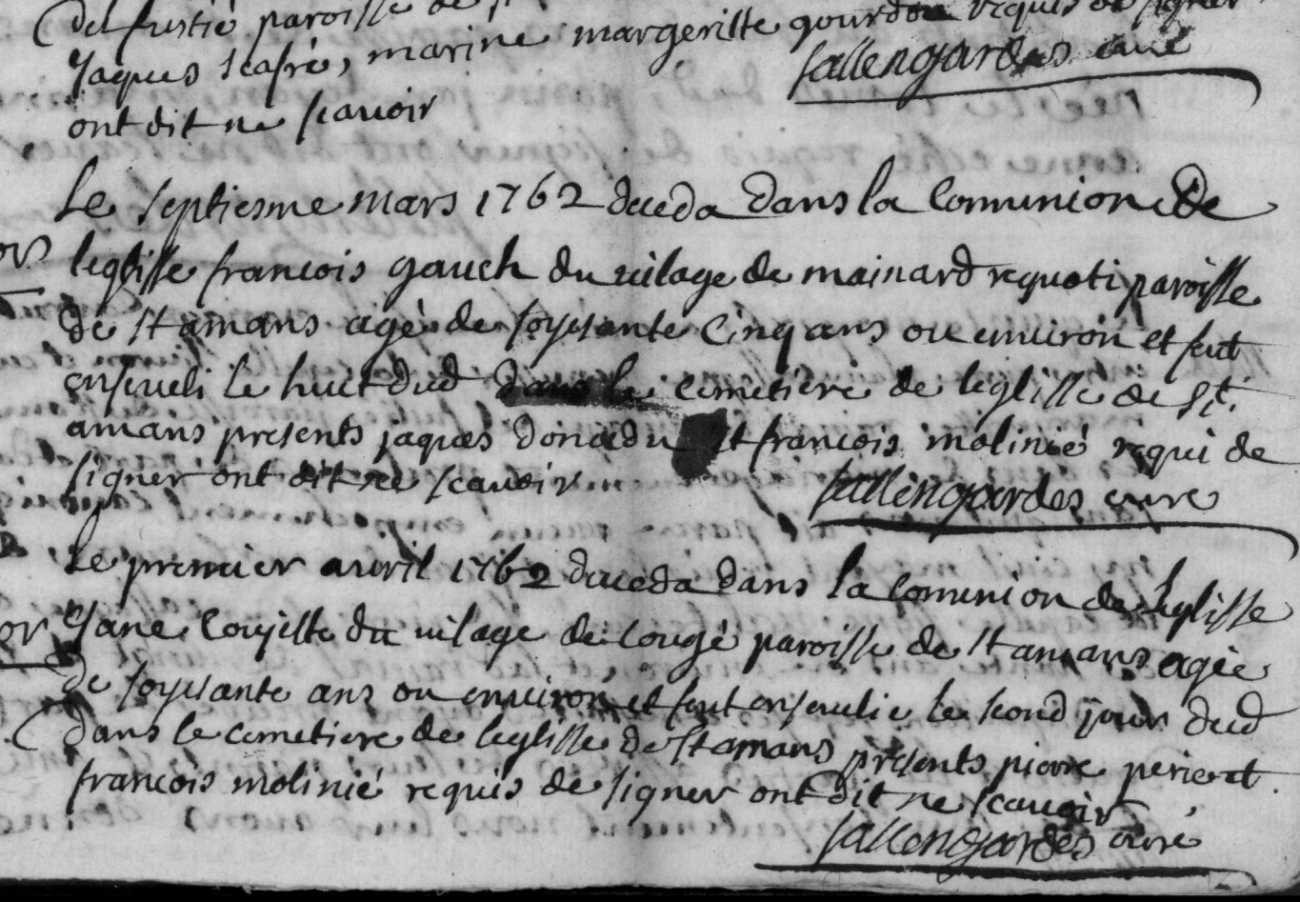 del fustié paroisse de
Jaques scafre, marine margeritte gourdou requis de signer
ont dit ne scavoir
sallengardes curé
Le septiesme mars 1762 deceda dans la Comunion de
leglisse francois gauch du vilage de mainard requoti paroisse
de st amans agé de soyesante Cinq ans ou environ et feut
enseveli le huit dud dans le cemetiere de leglisse de St.
amans presents jaques donadu et francois molinié requi de
signer ont dit ne scavoir
sallengardes cure
Le premier avril 1762 deceda dans la Comunion de leglisse
Jane Couyette du vilage de Cougé paroisse de st amans agée
de soyesante ans ou environ et feut ensevelie le scond jour dud
dans le cemetiere de leglisse de st amans presents pierre perie et
francois molinié requis de signer ont dit ne scavoir
sallengardes curé